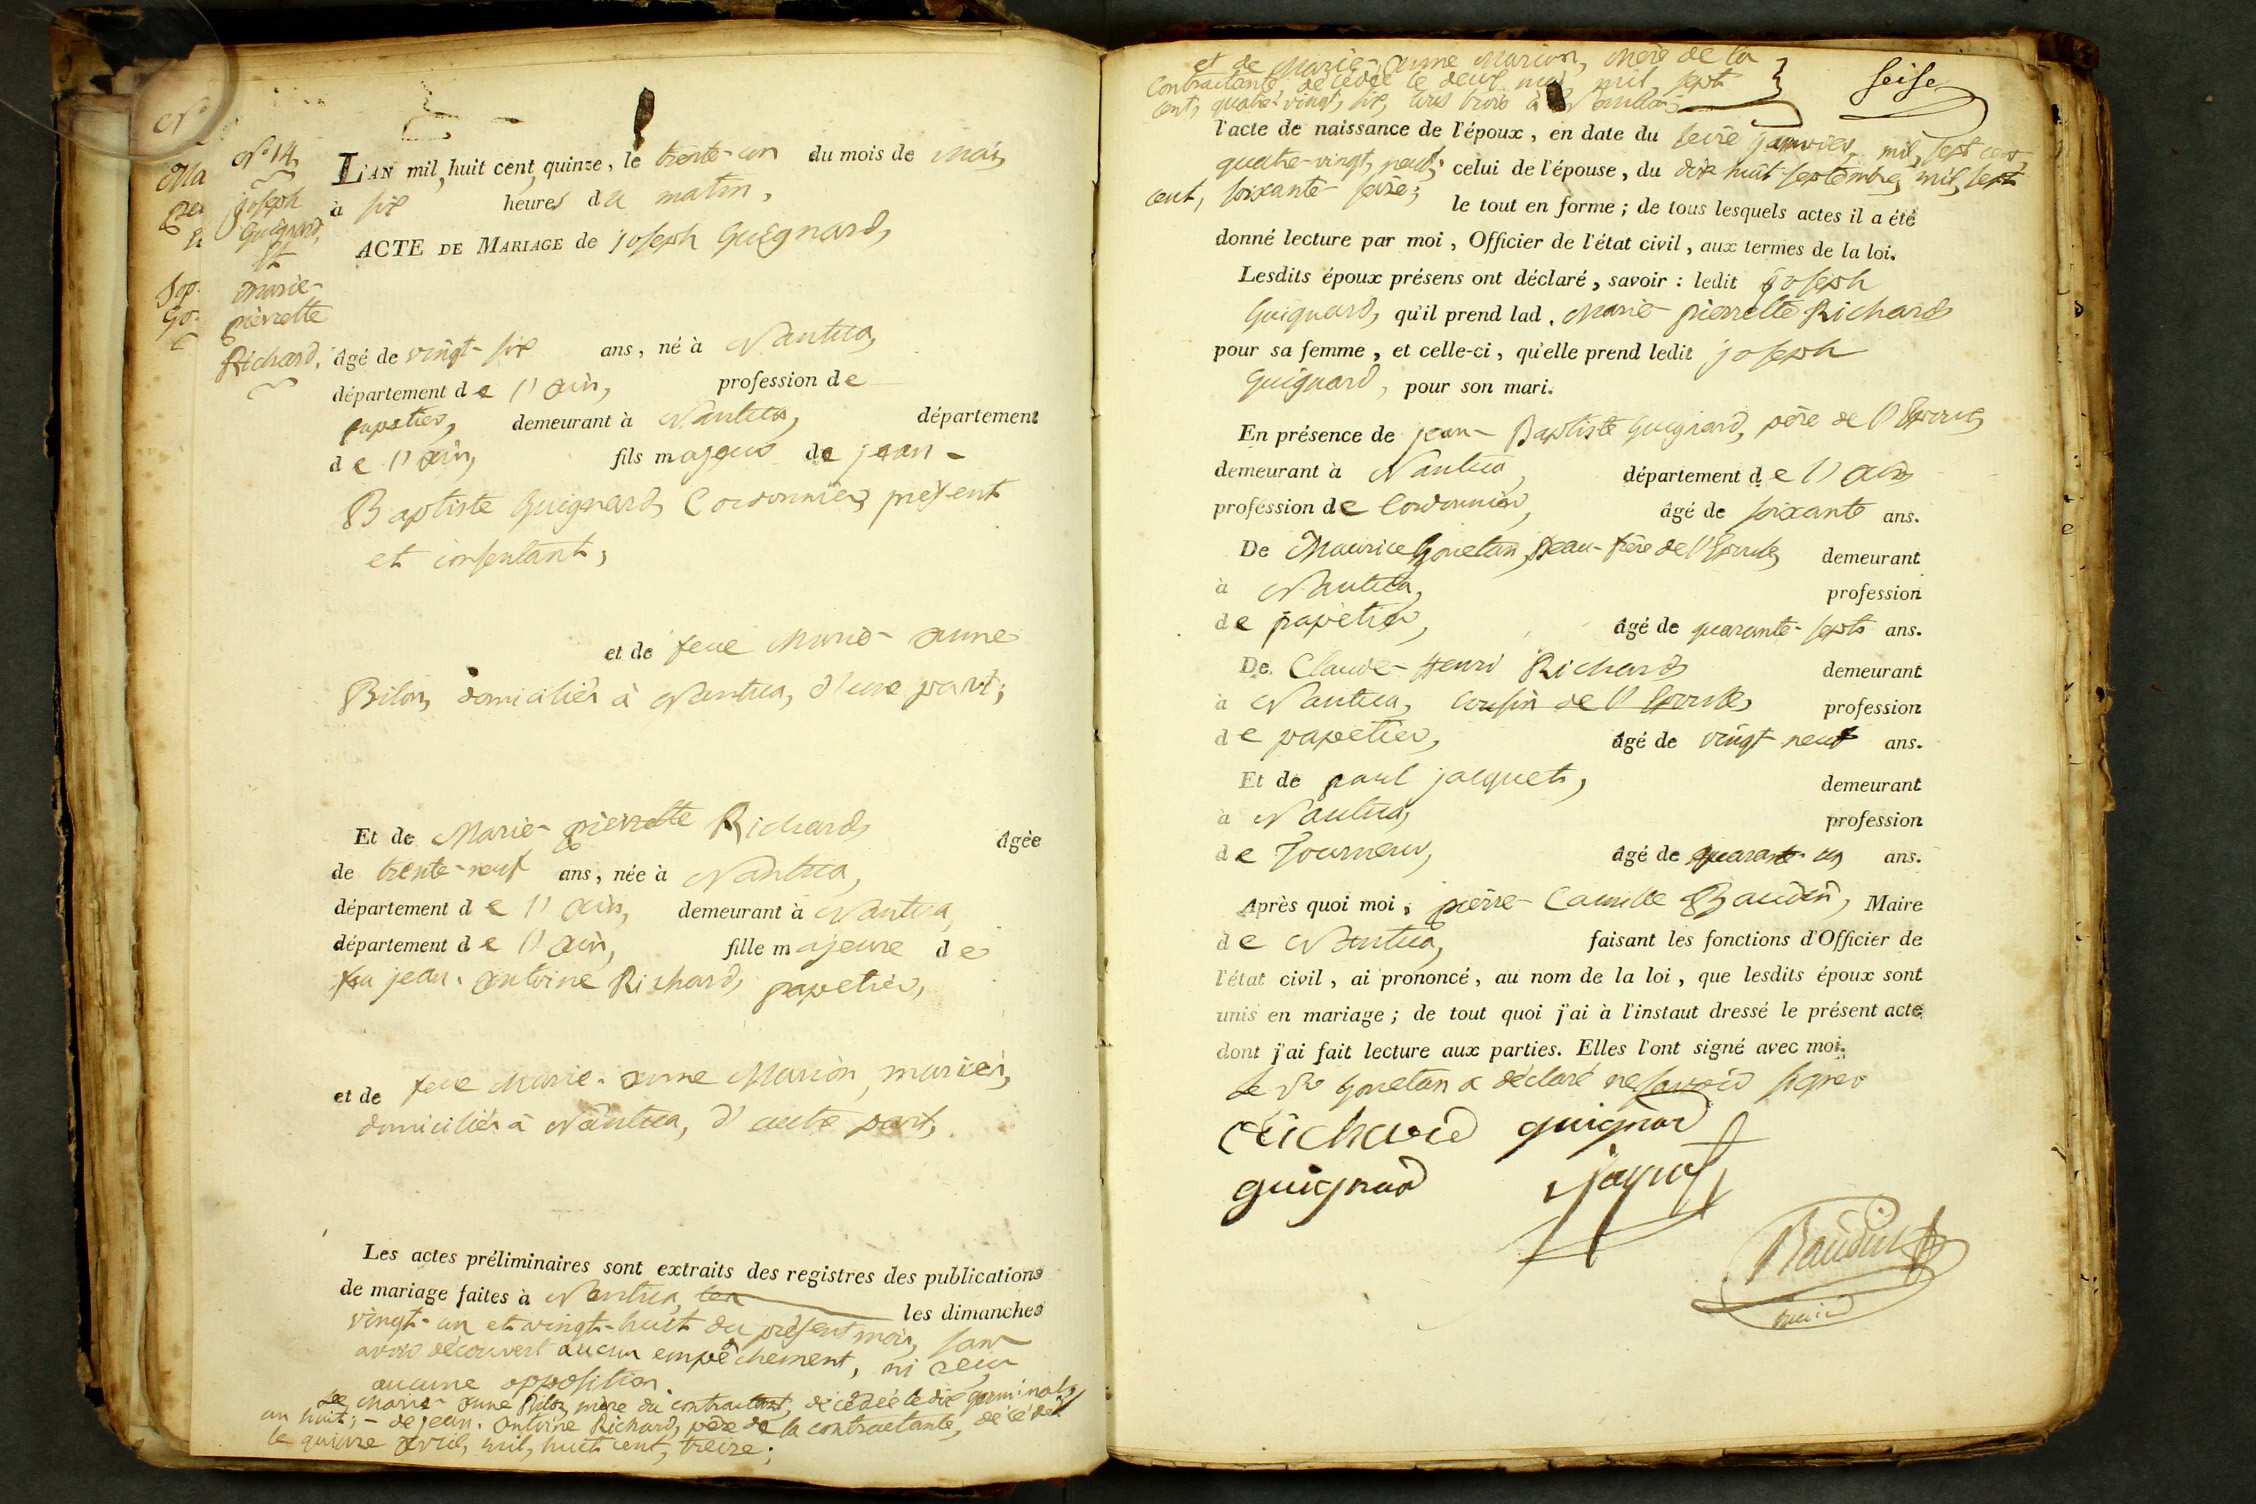 N°
Ma
N° 14.
joseph
Guignard,
Et
Marie-
pierrette
Richard.
L'AN mil huit cent quinze, le trente-un du mois de Mai,
à six heures du matin,
ACTE DE MARIAGE de joseph Guignard,
âgé de vingt-six ans, né à Nantua,
département de l'ain, profession de
papetier, demeurant à Nantua, département
de l'ain, fils majeur de jean-
Baptiste Guignard, Cordonnier, présent
et consentant,
et de feue Marie-anne
Bilon, domiciliés à Nantua, d'une part;
Et de Marie-pierrette Richard, âgée
de trente-neuf ans, née à Nantua,
département de l'ain, demeurant à Nantua,
département de l'ain, fille majeure de
feu jean-antoine Richard, papetier,
et de feue Marie-anne Marion, mariés,
domiciliés à Nantua, d'autre part,
Les actes préliminaires sont extraits des registres des publications
de mariage faites à Nantua, les dimanches
vingt-un et vingt-huit du présent mois, sans
avoir découvert aucun empêchement, ni reçu
aucune opposition.
de Marie-anne Bilon, mère du contractant, décédée le dix germinal,
an huit; - de jean-antoine Richard, père de la contractante, décédé
le quinze avril, mil, huit cent, treize;
et de Marie-anne Marion, mère de la
Contractante, décédée le deux mai mil sept
cent, quatre vingt, six, à Nantua;
seise
l'acte de naissance de l'époux, en date du seize janvier, mil, sept cent,
quatre-vingt, neuf; celui de l'épouse, du dix huit septembre, mil, sept
cent, soixante-seize; le tout en forme; de tous lesquels actes il a été
donné lecture par moi, Officier de l'état civil, aux termes de la loi.
Lesdits époux présens ont déclaré, savoir: ledit joseph
Guignard, qu'il prend lad. Marie-pierrette Richard
pour sa femme, et celle-ci, qu'elle prend ledit joseph
Guignard, pour son mari.
En présence de jean-Baptiste Guignard, père de l'Epoux,
demeurant à Nantua, département de l'ain
profession de Cordonnier, âgé de soixante ans.
De Maurice Gonetan, Beau-frère de l'Epouse, demeurant
à Nantua, profession
de papetier, âgé de quarante-sept ans.
De Claude-Henri Richard demeurant
à Nantua, Cousin de l'Epouse, profession
de papetier, âgé de vingt neuf ans.
Et de paul jacquet, demeurant
à Nantua, profession
de Tourneur, âgé de quarante-un ans.
Après quoi moi, pierre-Camille Baudin, Maire
de Nantua, faisant les fonctions d'Officier de
l'état civil, ai prononcé, au nom de la loi, que lesdits époux sont
unis en mariage; de tout quoi j'ai à l'instaut dressé le présent acte
dont j'ai fait lecture aux parties. Elles l'ont signé avec moi.
Le Sr Gonetan a déclaré ne savoir signer
Richard guignard
guignard
Baudin
maire